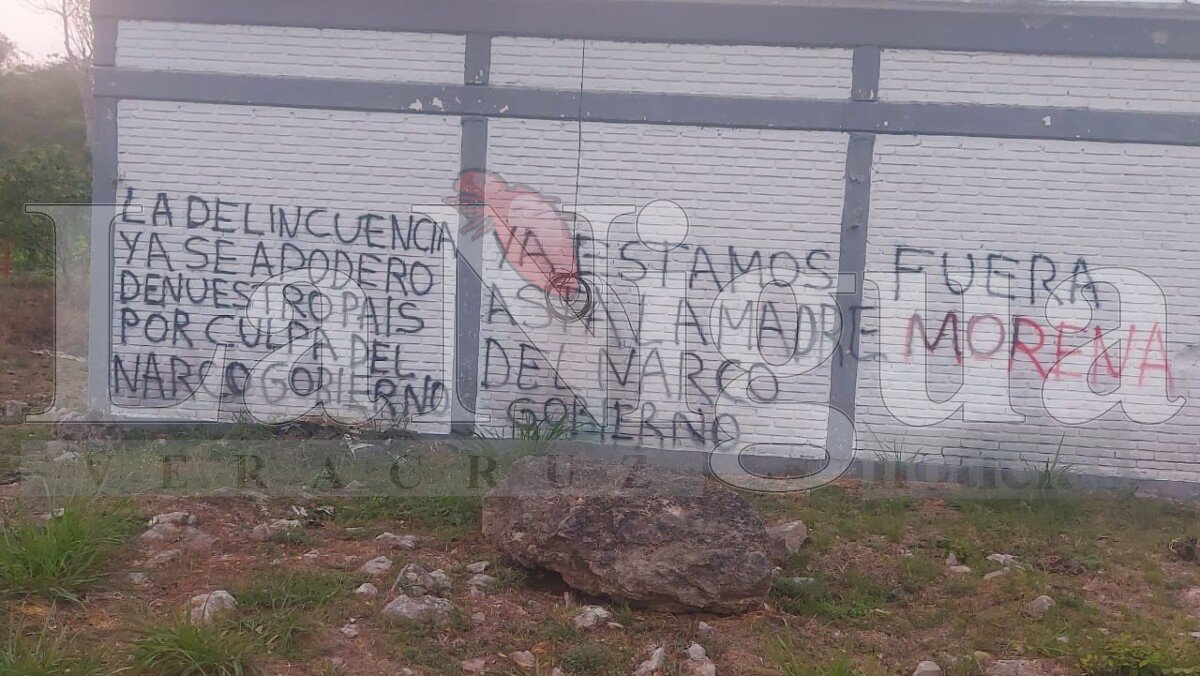 LA DELINCUENCIA
YA SE APODERO
DE NUESTRO PAIS
POR CULPA DEL
NARCO GOBIERNO
YA ESTAMOS
ASTA LA MADRE
DEL NARCO
GOBIERNO
FUERA
MORENA
La Nigua
VERACRUZ
noticias